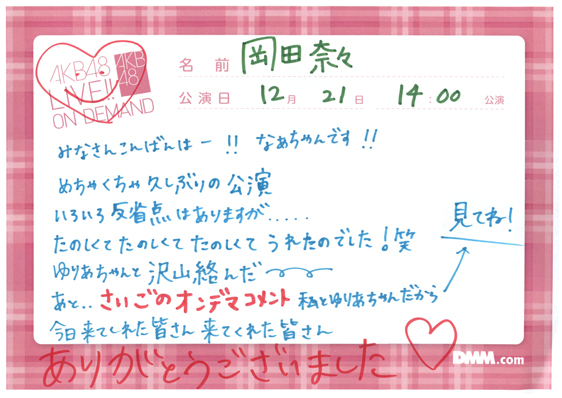 AKB48
LIVE!!
ON DEMAND
AKB
48
名前 岡田奈々
公演日 12月 21日 14:00 公演
みなさんこんばんはー!! なぁちゃんです!!
めちゃくちゃ久しぶりの公演
いろいろ反省点はありますが.....
たのしくてたのしくてたのしくて うれたのでした!笑
見てね!
ゆりあちゃんと沢山絡んだ
あと.. さいごのオンデマコメント 私とゆりあちゃんだから
今日来てくれた皆さん 来てくれた皆さん
ありがとうございました
DMM.com